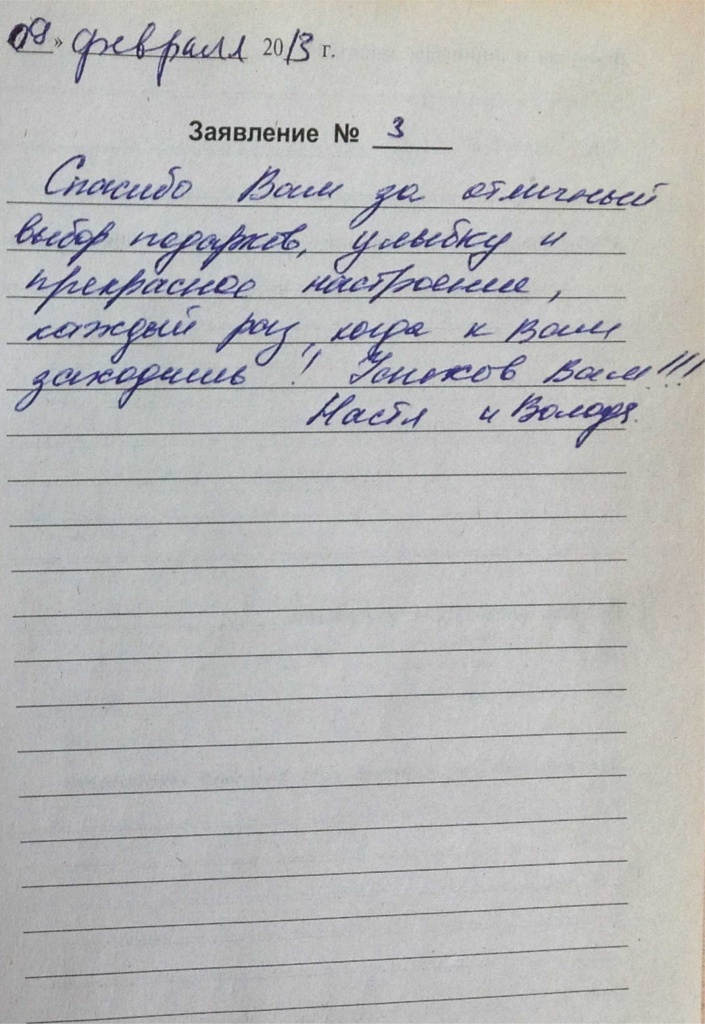 09» февраля 2013 г.
Заявление № 3
Спасибо Вам за отличный
выбор подарков, улыбку и
прекрасное настроение,
каждый раз, когда к Вам
заходишь! Успехов Вам!!!
Настя и Володя.